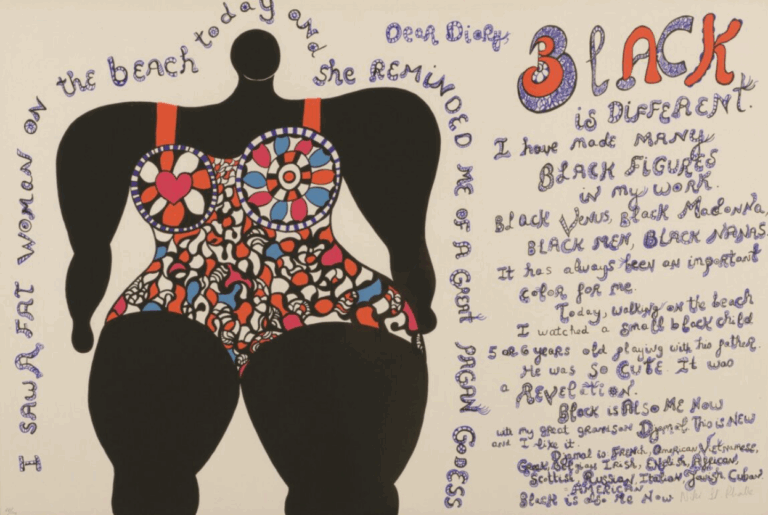 I SAW A FAT WOMAN ON the beach today and she REMINDED ME OF A Great PAGAN GODESS
Dear Diary,
BLACK
is DIFFERENT.
I have made MANY
BLACK FIGURES
in my work.
BLACK VENUS, BLACK MADONNA,
BLACK MEN, BLACK NANAS.
It has always been an important
color for me.
Today, walking on the beach
I watched a small black child
5 or 6 years old playing with his father.
He was SO CUTE It was
a REVELATION.
Black is Also ME NOW
with my great grandson Djamal This is NEW
and I like it.
Djamal is FRENCH, American, Vietnamese,
Greek, Belgian, Irish, English, African,
Scottish, Russian, Italian, Jewish, Cuban,
AMERICAN
Black is also Me Now